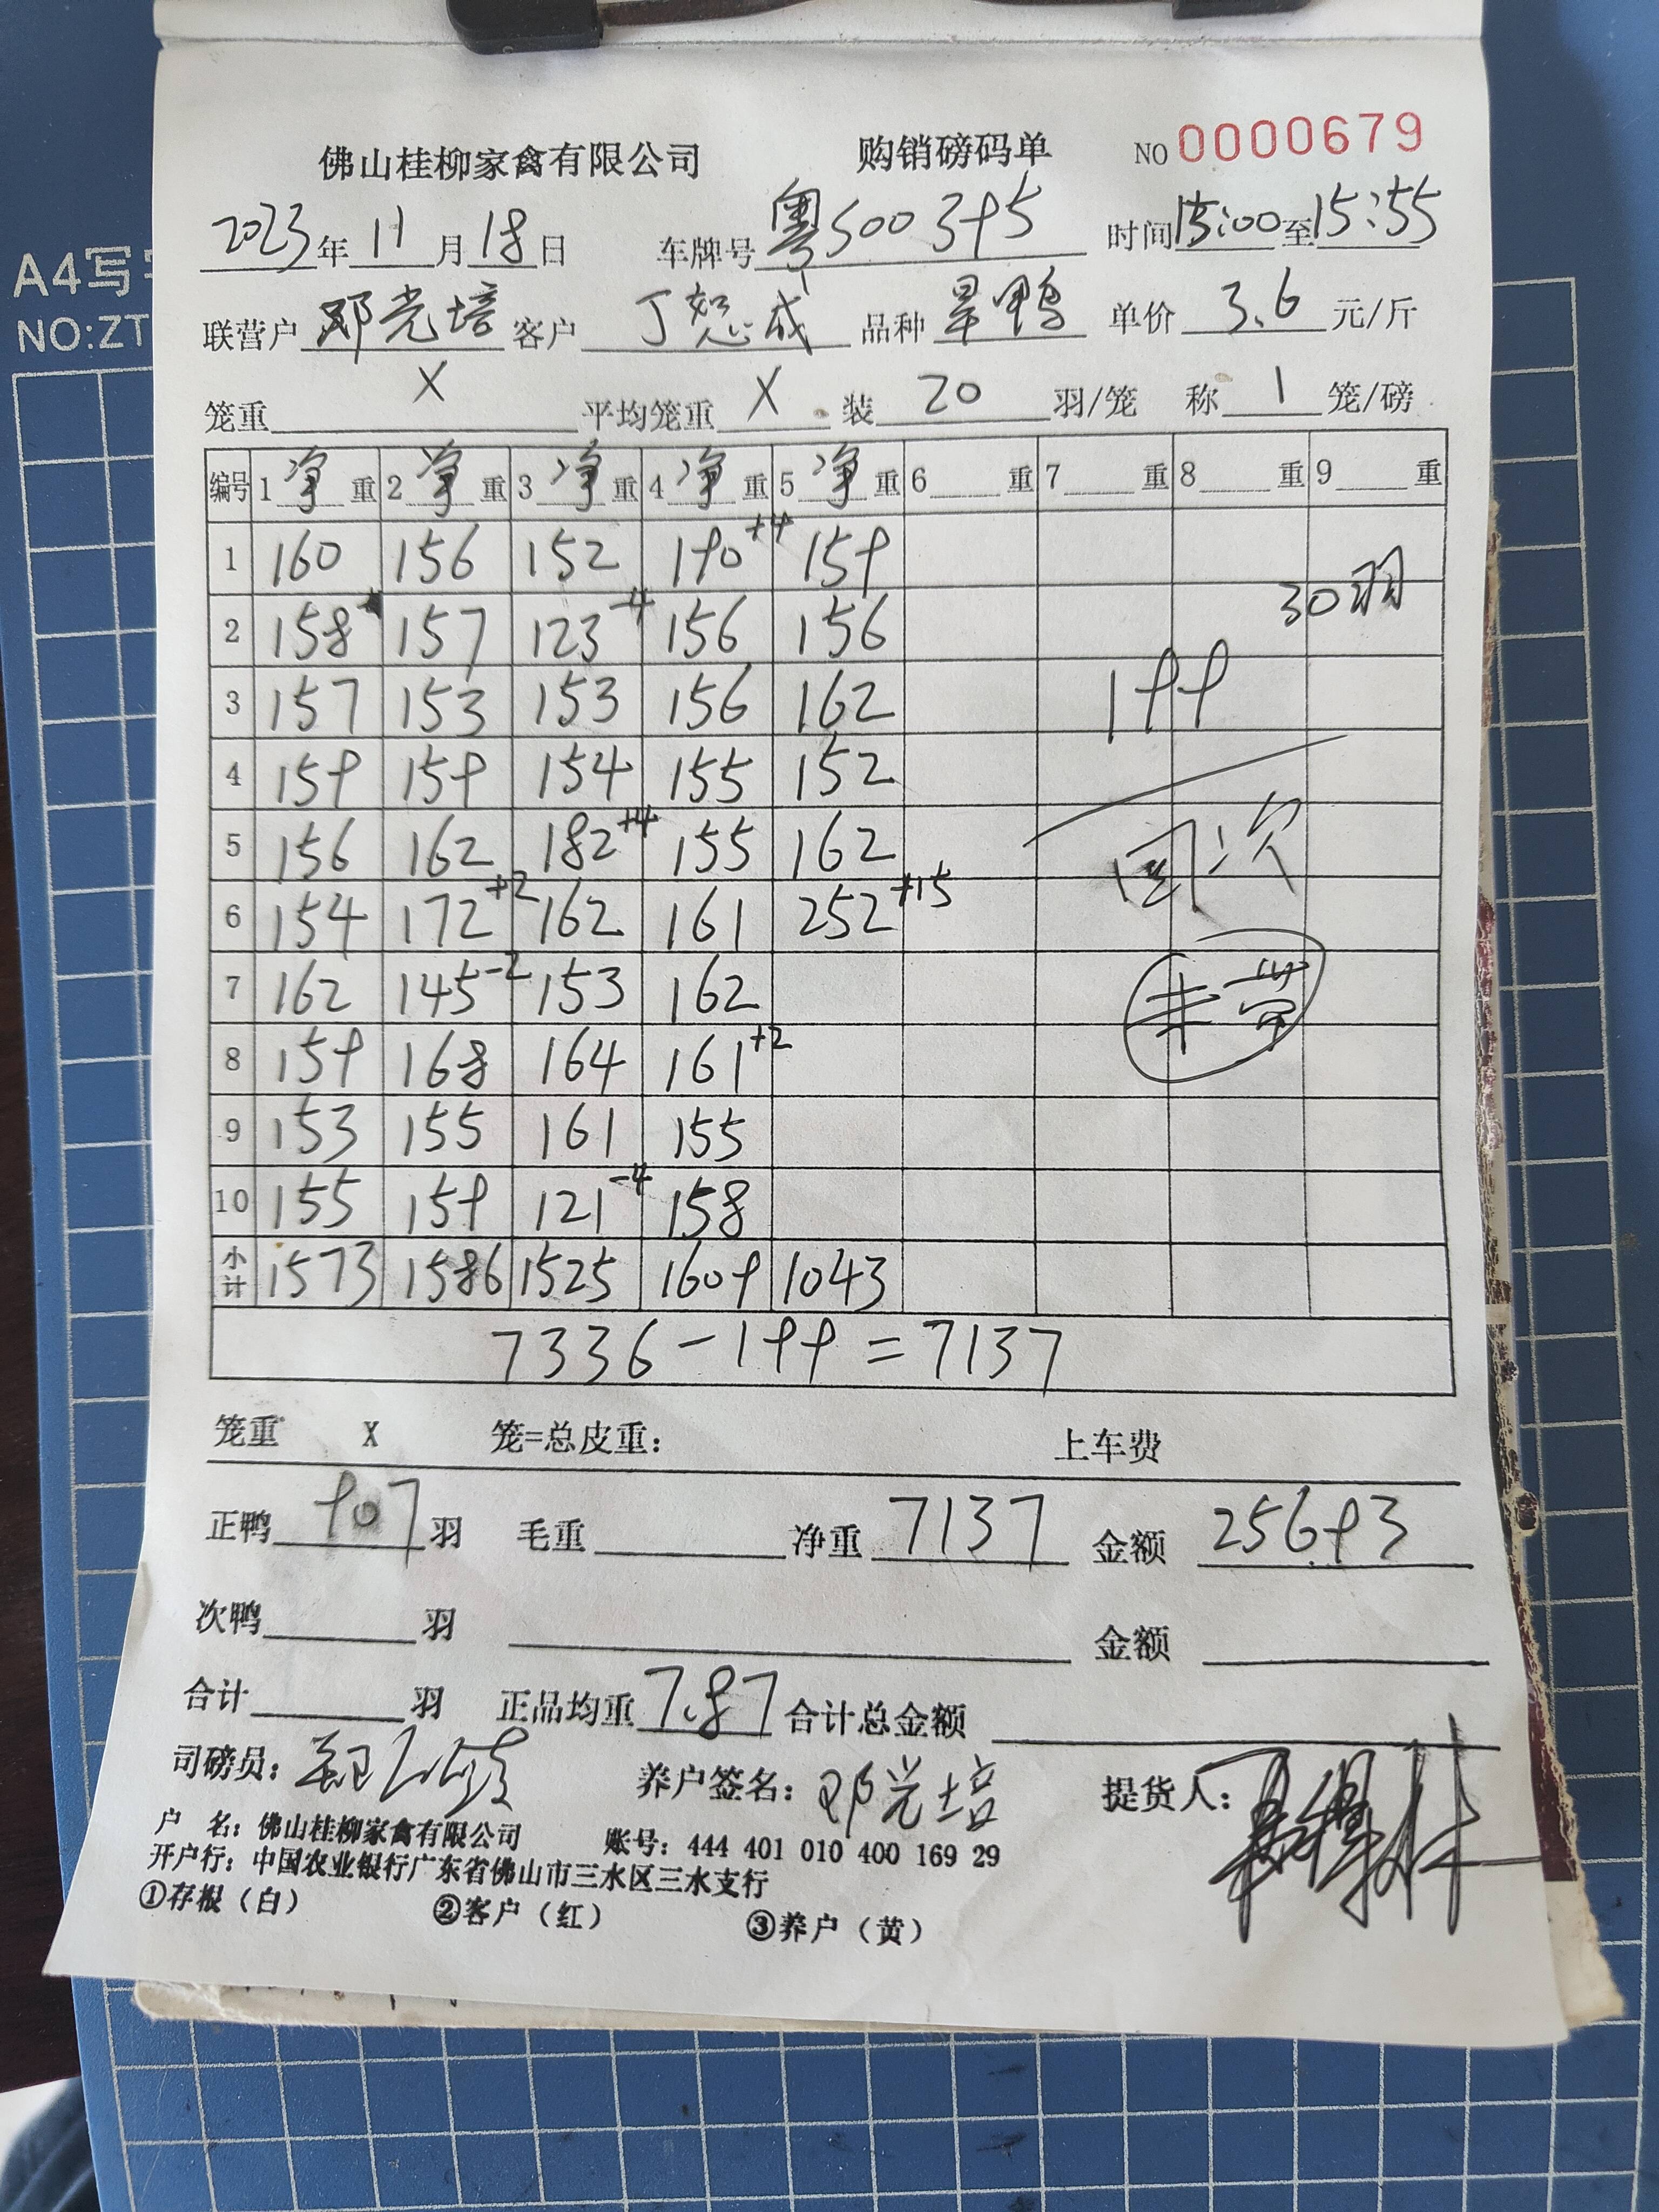 A4写
NO:ZT
佛山桂柳家禽有限公司 购销磅码单 NO 0000679
2023年11月18日 车牌号 粤S00395 时间 15:00 至 15:55
联营户 邓光培 客户 丁恕成 品种 旱鸭 单价 3.6 元/斤
笼重 X 平均笼重 X 装 20 羽/笼 称 1 笼/磅
编号 1 净 重 2 净 重 3 净 重 4 净 重 5 净 重 6 重 7 重 8 重 9 重
1 160 156 152 190+4 159
30羽
2 158 157 123-4 156 156
3 157 153 153 156 162
199
4 159 159 154 155 152
5 156 162 182+4 155 162
次
6 154 172+2 162 161 252+15
7 162 145-2 153 162
8 159 168 164 161+2
9 153 155 161 155
10 155 159 121-4 158
小计 1573 1586 1525 1609 1043
7336-199=7137
笼重 X 笼=总皮重: 上车费
正鸭 907 羽 毛重 净重 7137 金额 25693
次鸭 羽 金额
合计 羽 正品均重 7.87 合计总金额
司磅员: 养户签名: 邓光培 提货人:
户 名: 佛山桂柳家禽有限公司 账号: 444 401 010 400 169 29
开户行: 中国农业银行广东省佛山市三水区三水支行
①存根（白） ②客户（红） ③养户（黄）